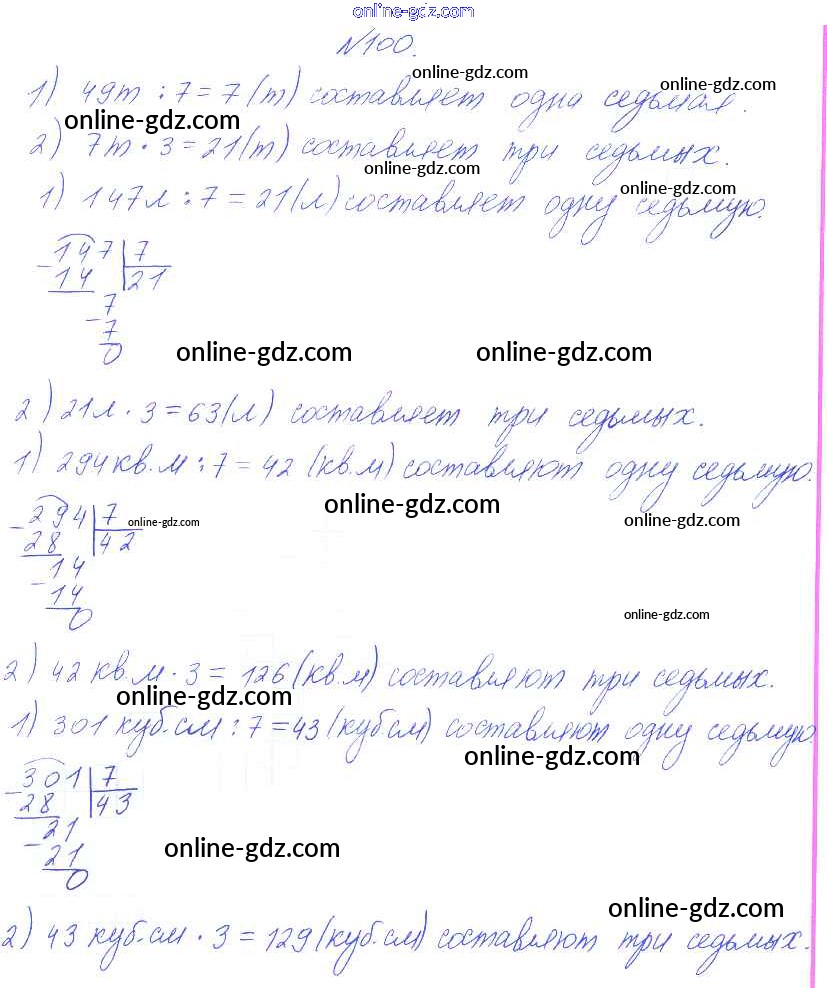 online-gdz.com
№100.
online-gdz.com
1) 49т : 7 = 7 (т) составляет одна седьмая.
online-gdz.com
online-gdz.com
2) 7т · 3 = 21 (т) составляет три седьмых.
online-gdz.com
online-gdz.com
1) 147л : 7 = 21 (л) составляет одну седьмую.
147 | 7
- 14 | 21
7
- 7
0
online-gdz.com online-gdz.com
2) 21л · 3 = 63 (л) составляет три седьмых.
1) 294 кв.м : 7 = 42 (кв.м) составляют одну седьмую.
online-gdz.com
- 294 | 7
online-gdz.com
online-gdz.com
28 | 42
- 14
14
0
online-gdz.com
2) 42 кв.м · 3 = 126 (кв.м) составляют три седьмых.
online-gdz.com
1) 301 куб.см : 7 = 43 (куб.см) составляют одну седьмую.
online-gdz.com
- 301 | 7
28 | 43
- 21
21
0
online-gdz.com
online-gdz.com
2) 43 куб.см · 3 = 129 (куб.см) составляют три седьмых.